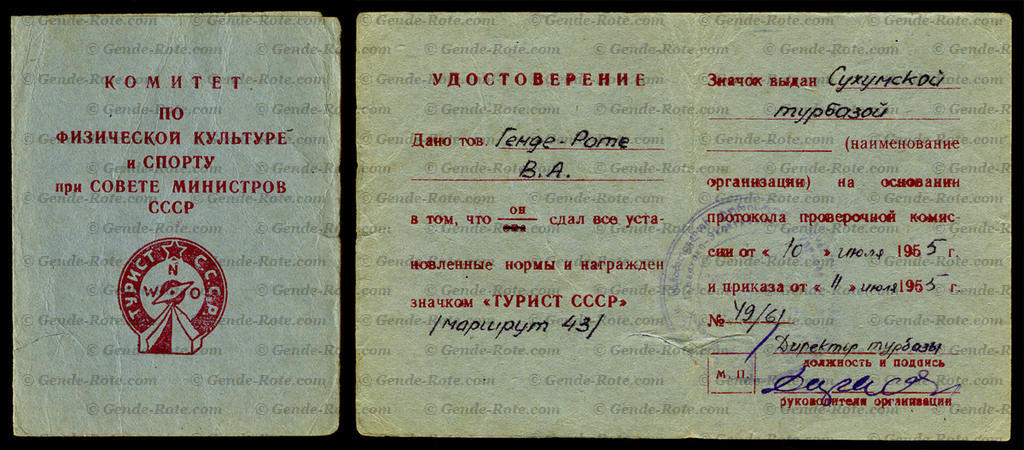 КОМИТЕТ
ПО
ФИЗИЧЕСКОЙ КУЛЬТУРЕ
и СПОРТУ
при СОВЕТЕ МИНИСТРОВ
СССР
ТУРИСТ СССР
N
W O
УДОСТОВЕРЕНИЕ
Дано тов. Генде-Роте
В.А.
в том, что он сдал все уста-
она
новленные нормы и награжден
значком «ТУРИСТ СССР»
/маршрут 43/
Значок выдан Сухумской
турбазой
(наименование
организации) на основании
протокола проверочной комис-
сии от « 10 » июля 1955 г.
и приказа от « 11 » июля 1955 г.
№ 49/61
Директор турбазы
должность и подпись
М. П.
руководителя организации
© Gende-Rote.com